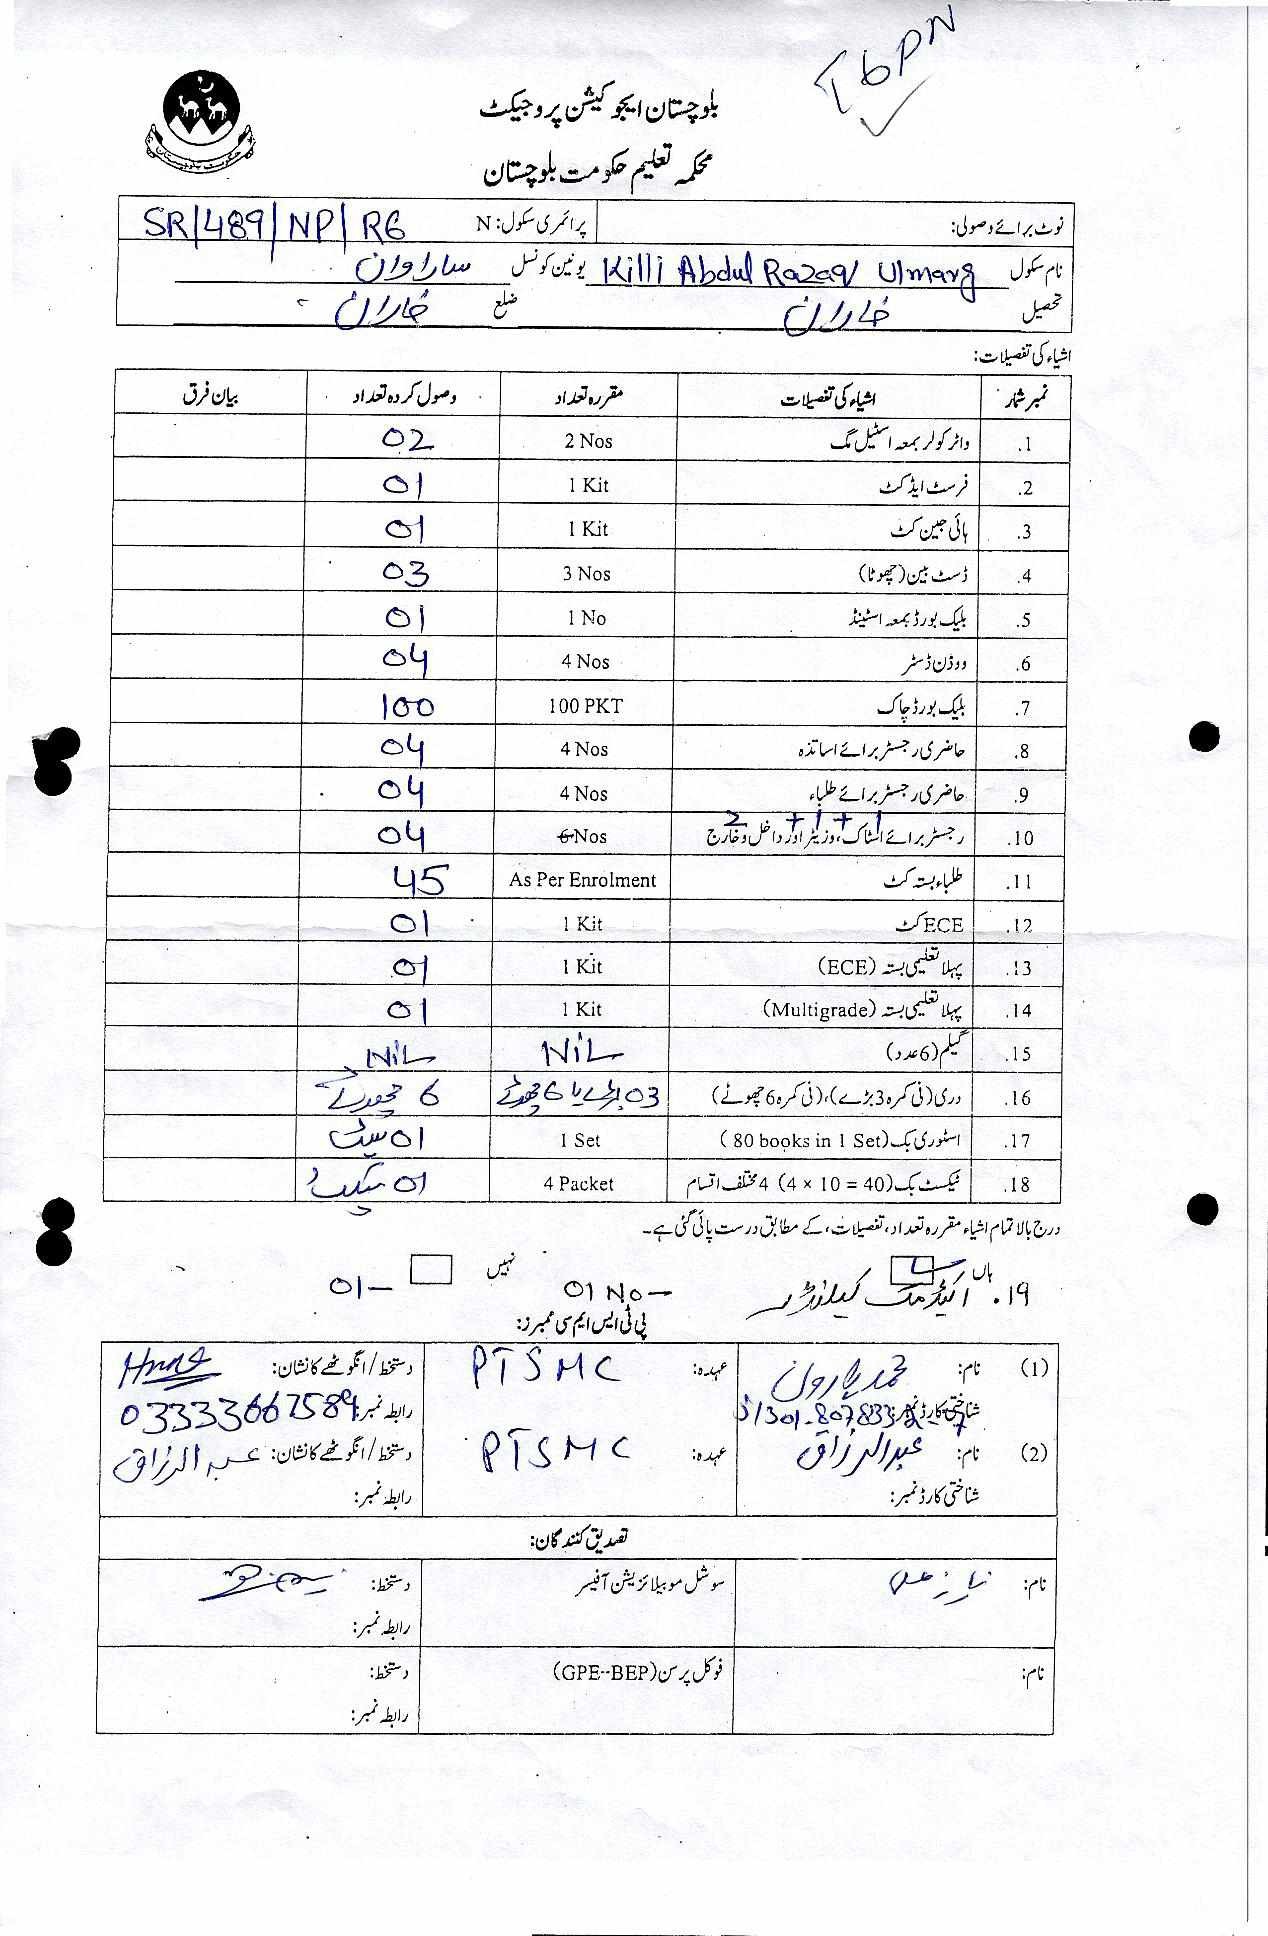 بلوچستان ایجوکیشن پروجیکٹ
محکمہ تعلیم حکومت بلوچستان
نوٹ برائے وصولی: پرائمری سکول: N SR/489/NP/RG
نام سکول Killi Abdul Razaq Ulmarg یونین کونسل ساراوان
تحصیل خاران ضلع خاران
اشیاء کی تفصیلات:
نمبر شمار اشیاء کی تفصیلات مقررہ تعداد وصول کردہ تعداد بیان فرق
1. واٹر کولر بمعہ اسٹیل مگ 2 Nos 02
2. فرسٹ ایڈ کٹ 1 Kit 01
3. ہائی جین کٹ 1 Kit 01
4. ڈسٹ بین (چھوٹا) 3 Nos 03
5. بلیک بورڈ بمعہ اسٹینڈ 1 No 01
6. ووڈن ڈسٹر 4 Nos 04
7. بلیک بورڈ چاک 100 PKT 100
8. حاضری رجسٹر برائے اساتذہ 4 Nos 04
9. حاضری رجسٹر برائے طلباء 4 Nos 04
2 + 1 + 1
10. رجسٹر برائے اسٹاک، وزیٹر اور داخل و خارج 6 Nos 04
11. طلباء بستہ کٹ As Per Enrolment 45
12. ECE کٹ 1 Kit 01
13. پہلا تعلیمی بستہ (ECE) 1 Kit 01
14. پہلا تعلیمی بستہ (Multigrade) 1 Kit 01
15. گیلم (6 عدد) NiL NiL
16. دری (فی کمرہ 3 بڑے)، (فی کمرہ 6 چھوٹے) 03 بڑے یا 6 چھوٹے 6 چھوٹے
17. اسٹوری بک (80 books in 1 Set) 1 Set 01 سیٹ
18. ٹیکسٹ بک (4 × 10 = 40) 4 مختلف اقسام 4 Packet 01 پیکٹ
درج بالا تمام اشیاء مقررہ تعداد، تفصیلات، کے مطابق درست پائی گئی ہے۔
ہاں نہیں
۱۹. اکیڈمک کیلنڈر 01 No — 01 —
پی ٹی ایس ایم سی ممبرز:
(1) نام: محمد ہارون عہدہ: PTSMC دستخط / انگوٹھے کا نشان:
شناختی کارڈ نمبر: رابطہ نمبر: 03333667589
(2) نام: عبدالرزاق عہدہ: PTSMC دستخط / انگوٹھے کا نشان: عبدالرزاق
شناختی کارڈ نمبر: رابطہ نمبر:
تصدیق کنندگان:
نام: سوشل موبیلائزیشن آفیسر دستخط:
رابطہ نمبر:
نام: فوکل پرسن (GPE--BEP) دستخط:
رابطہ نمبر: